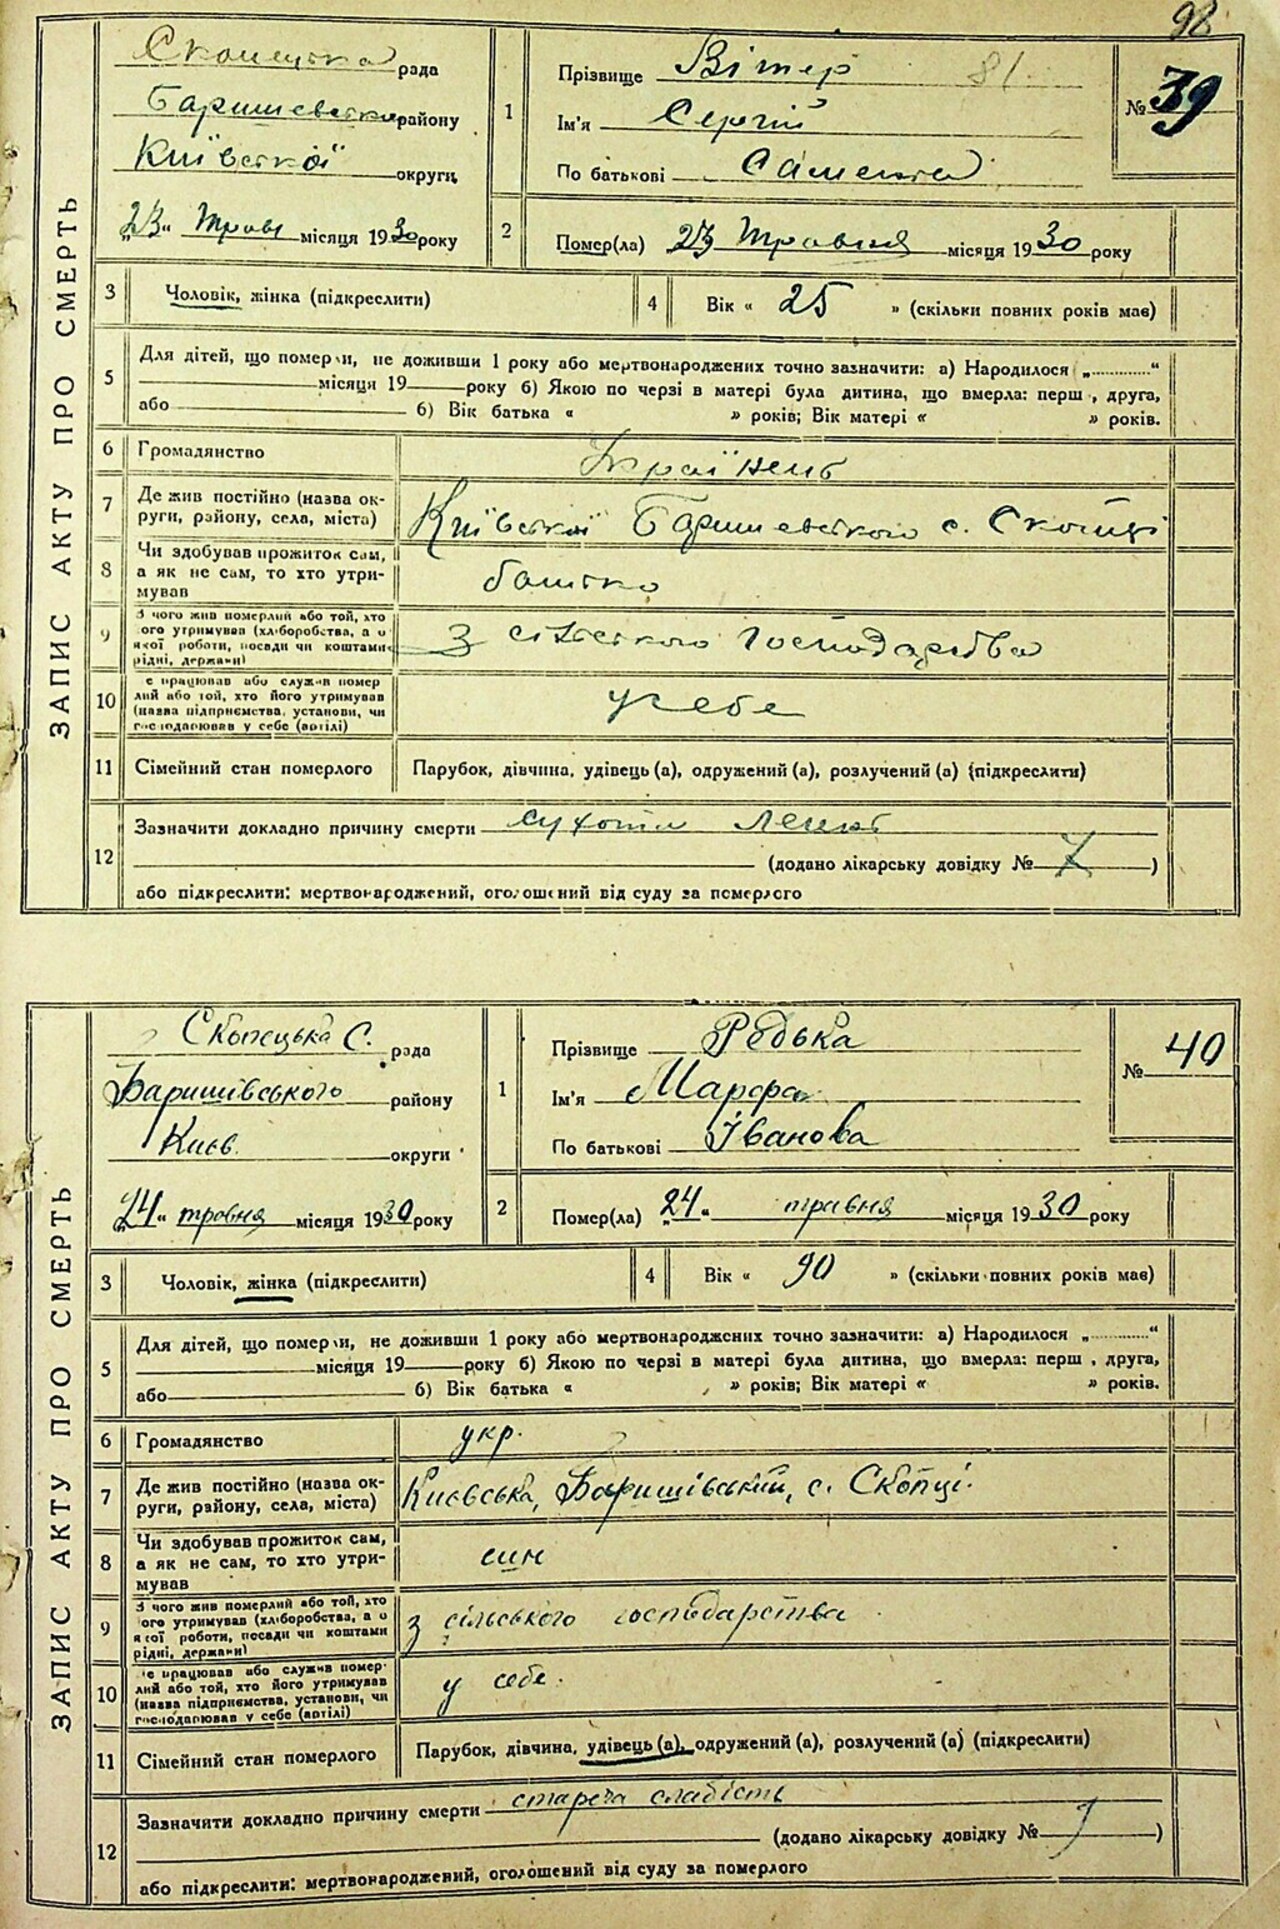 98
ЗАПИС АКТУ ПРО СМЕРТЬ
Скопецька рада
Баришевського району
Київської округи
„23“ Трав місяця 1930 року
1
Прізвище Вітер 81.
Ім'я Сергій
По батькові
№ 39
2
Помер(ла) 23 Травня місяця 1930 року
3
Чоловік, жінка (підкреслити)
4
Вік « 25 » (скільки повних років має)
5
Для дітей, що померли, не доживши 1 року або мертвонароджених точно зазначити: а) Народилося „..............“
місяця 19 року б) Якою по черзі в матері була дитина, що вмерла: перш , друга,
або б) Вік батька « » років; Вік матері « » років.
6
Громадянство Українець
7
Де жив постійно (назва ок-
руги, району, села, міста) Київської Баришевського с. Скопці
8
Чи здобував прожиток сам,
а як не сам, то хто утри-
мував батько
9
З чого жив померлий або той, хто
ого утримував (хліборобства, а о
якої роботи, посади чи коштами
рідні, держави) З сільського господарства
10
е працював або служив помер
лий або той, хто його утримував
(назва підприємства, установи, чи
господарював у себе (артілі) у себе
11
Сімейний стан померлого Парубок, дівчина, удівець (а), одружений (а), розлучений (а) (підкреслити)
12
Зазначити докладно причину смерти сухоти легень
(додано лікарську довідку № 7 )
або підкреслити: мертвонароджений, оголошений від суду за померлого
ЗАПИС АКТУ ПРО СМЕРТЬ
Скопецька С. рада
Баришівського району
Києв. округи
„24“ травня місяця 1930 року
1
Прізвище Редька
Ім'я Марфа
По батькові Іванова
№ 40
2
Помер(ла) „24“ травня місяця 1930 року
3
Чоловік, жінка (підкреслити)
4
Вік « 90 » (скільки повних років має)
5
Для дітей, що померли, не доживши 1 року або мертвонароджених точно зазначити: а) Народилося „..............“
місяця 19 року б) Якою по черзі в матері була дитина, що вмерла: перш , друга,
або б) Вік батька « » років; Вік матері « » років.
6
Громадянство укр.
7
Де жив постійно (назва ок-
руги, району, села, міста) Києвська, Баришівський, с. Скопці.
8
Чи здобував прожиток сам,
а як не сам, то хто утри-
мував син
9
З чого жив померлий або той, хто
ого утримував (хліборобства, а о
якої роботи, посади чи коштами
рідні, держави) з сільського господарства
10
е працював або служив помер-
лий або той, хто його утримував
(назва підприємства, установи, чи
господарював у себе (артілі) у себе.
11
Сімейний стан померлого Парубок, дівчина, удівець (а), одружений (а), розлучений (а) (підкреслити)
12
Зазначити докладно причину смерти стареча слабість
(додано лікарську довідку № )
або підкреслити: мертвонароджений, оголошений від суду за померлого